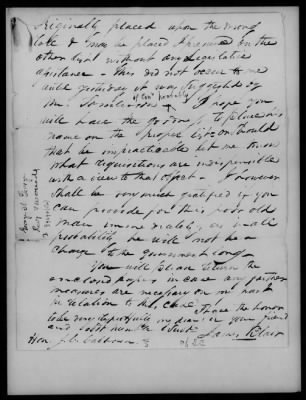 Originally placed upon the wrong
lots & may be placed & remain on the
other list without any Legislative
assistance - This did not occur to me
until yesterday it was suggested by
Mr. I hope you
will have the goodness to place his
name on the proper list, or should
that be impracticable let me know
what requisitions are indispensible
with a view to that effect - I however
shall be very much gratified if you
can provide for this poor old
man immediately, as in all
probability he will not be a
charge to the Government long.
You will please return the
enclosed papers in case any further
measures are necessary on my part
in relation to this case. I have the honor
to be very respectfully my dear sir your friend
and obdt. servt.
James Blair
Hon. J. C. Calhoun